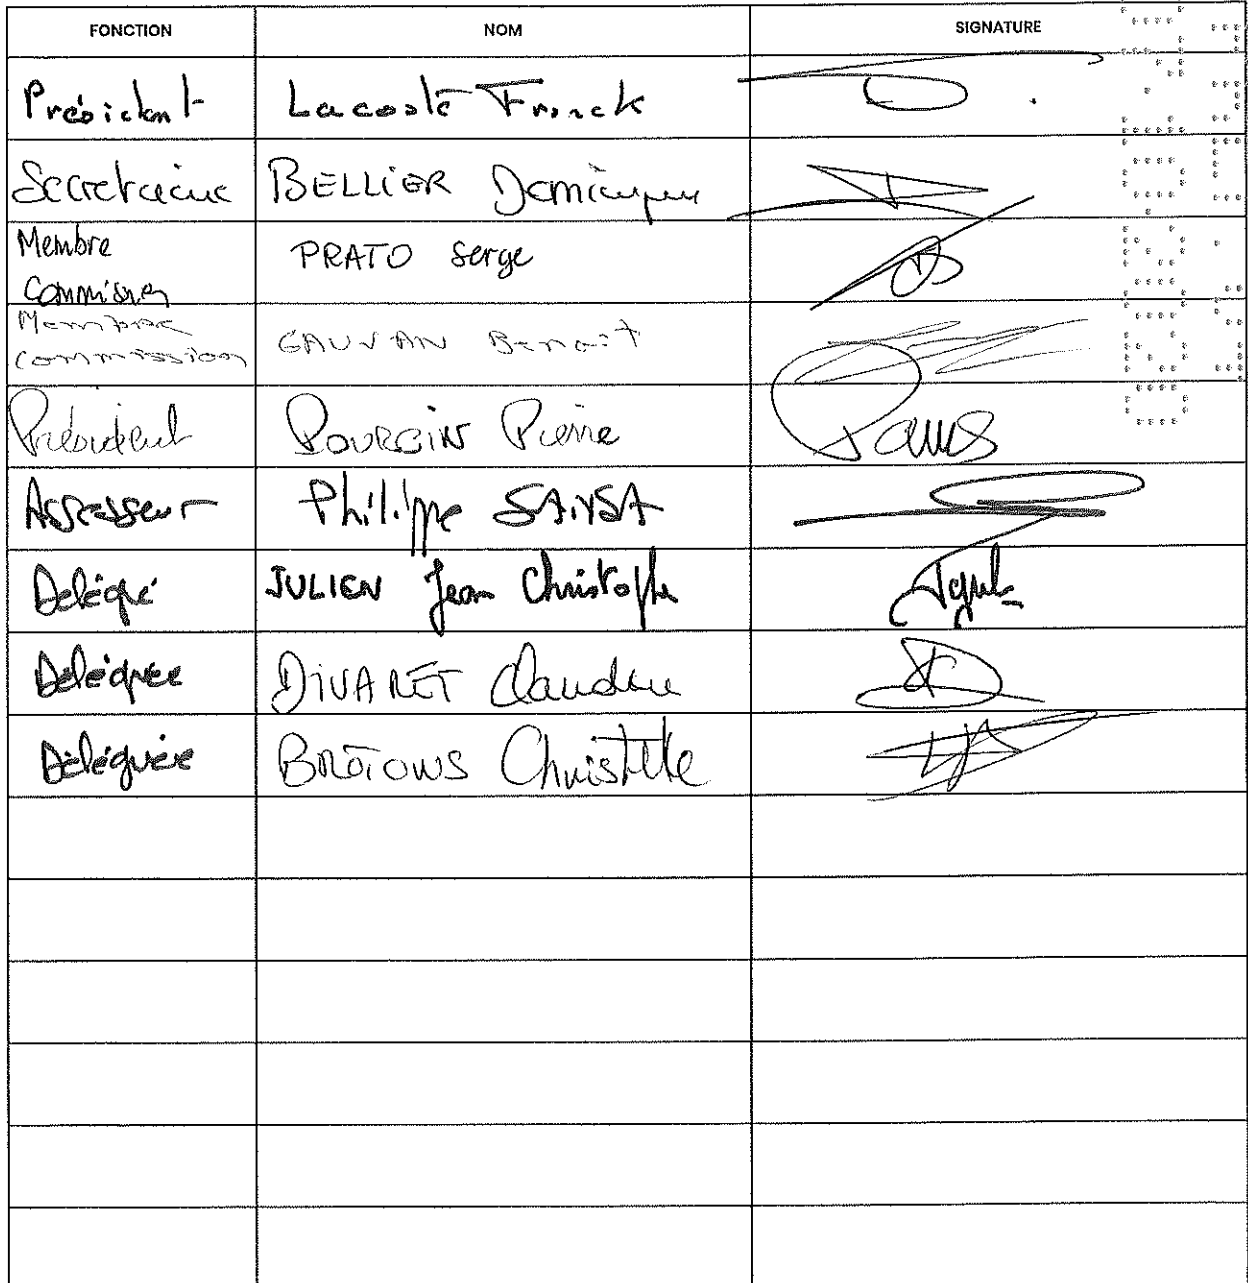 FONCTION NOM SIGNATURE
Président Lacoste Franck
Secretaire BELLIER Dominique
Membre
Commission PRATO Serge
Membre
commission GAUVAN Benoit
Président POURCIN Pierre
Assesseur Philippe SANSA
Délégué JULIEN Jean Christophe
Déléguée DIVARET Claudine
Déléguée Christelle